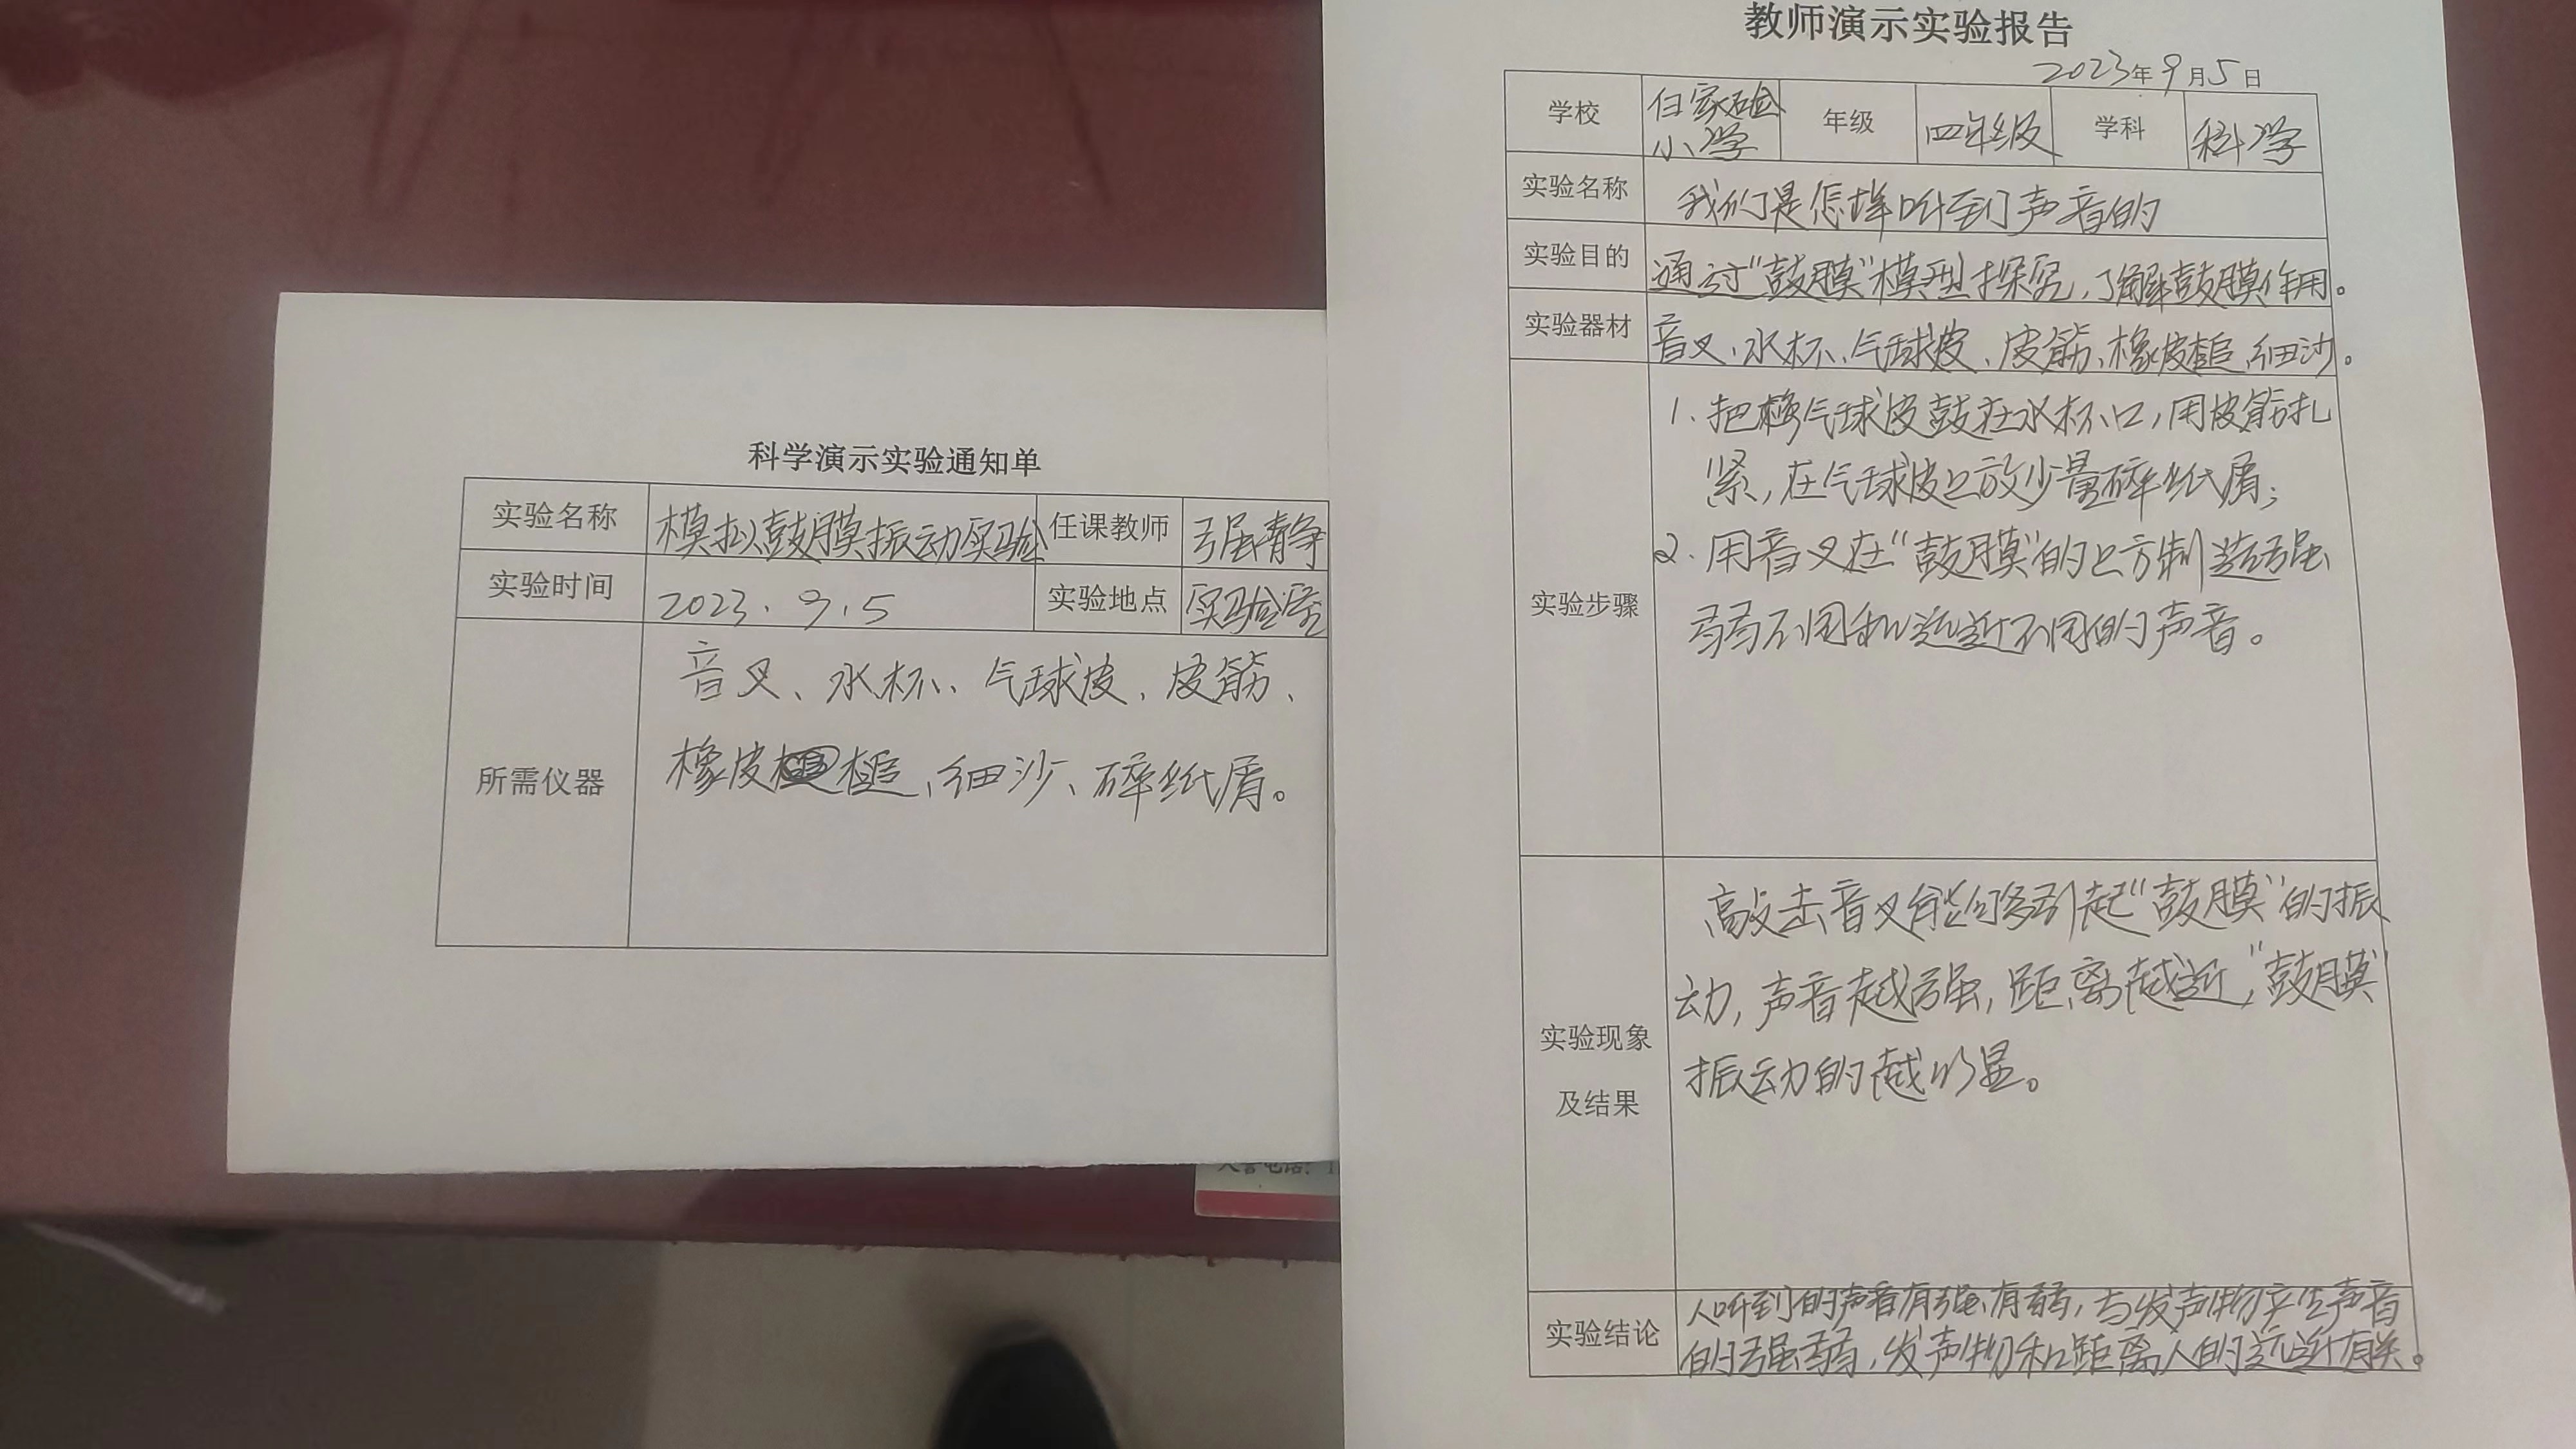 科学演示实验通知单
实验名称 模拟鼓膜振动实验 任课教师 强靖
实验时间 2023.9.5 实验地点 实验室
所需仪器 音叉、水杯、气球皮、皮筋、
橡皮槌、细沙、碎纸屑。
教师演示实验报告
2023年9月5日
学校 任家碥小学 年级 四年级 学科 科学
实验名称 我们是怎样听到声音的
实验目的 通过"鼓膜"模型探究,了解鼓膜作用。
实验器材 音叉、水杯、气球皮、皮筋、橡皮槌、细沙。
实验步骤
1. 把气球皮鼓在水杯口,用皮筋扎
紧,在气球皮上放少量碎纸屑;
2. 用音叉在"鼓膜"的上方制造强
弱不同和远近不同的声音。
实验现象
及结果
敲击音叉能够引起"鼓膜"的振
动,声音越强,距离越近,"鼓膜"
振动的越明显。
实验结论
人听到的声音有强、有弱,与发声物产生声音
的强弱,发声物和距离人的远近有关。